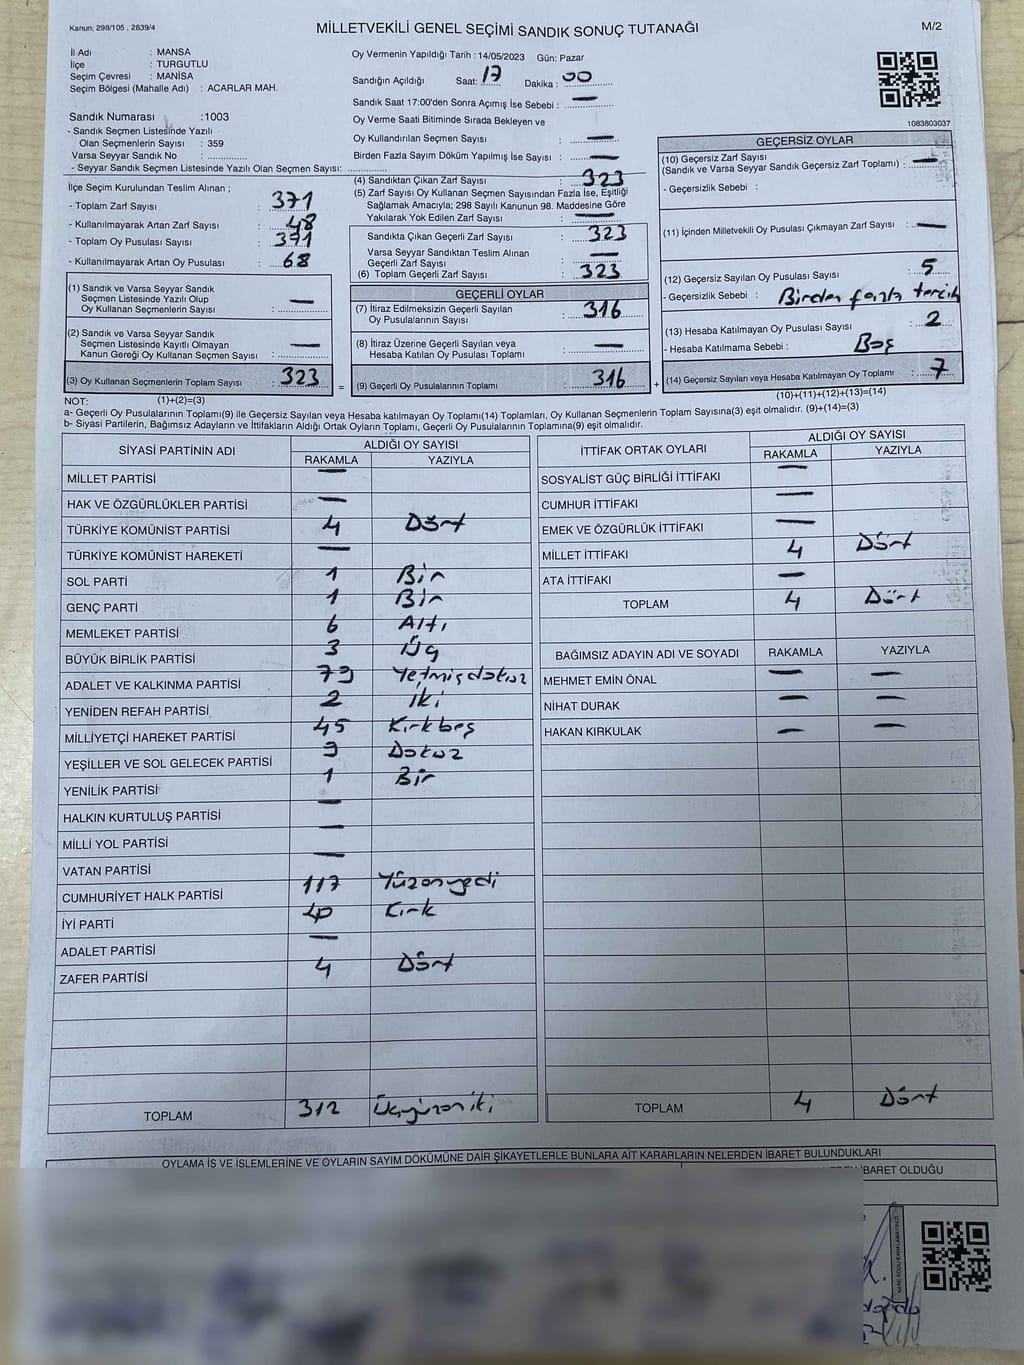 Kanun: 298/105 , 2839/4
MİLLETVEKİLİ GENEL SEÇİMİ SANDIK SONUÇ TUTANAĞI
M/2
İl Adı : MANSA
İlçe : TURGUTLU
Seçim Çevresi : MANİSA
Seçim Bölgesi (Mahalle Adı) : ACARLAR MAH.
Sandık Numarası :1003
- Sandık Seçmen Listesinde Yazılı
Olan Seçmenlerin Sayısı : 359
Varsa Seyyar Sandık No : ..............
- Seyyar Sandık Seçmen Listesinde Yazılı Olan Seçmen Sayısı:
Oy Vermenin Yapıldığı Tarih : 14/05/2023 Gün: Pazar
Sandığın Açıldığı Saat: 17 Dakika : 00
Sandık Saat 17:00'den Sonra Açımış İse Sebebi : —
Oy Verme Saati Bitiminde Sırada Bekleyen ve
Oy Kullandırılan Seçmen Sayısı : —
Birden Fazla Sayım Döküm Yapılmış İse Sayısı : —
1083803037
İlçe Seçim Kurulundan Teslim Alınan ;
- Toplam Zarf Sayısı : 371
- Kullanılmayarak Artan Zarf Sayısı : 48
- Toplam Oy Pusulası Sayısı : 371
- Kullanılmayarak Artan Oy Pusulası : 68
(1) Sandık ve Varsa Seyyar Sandık
Seçmen Listesinde Yazılı Olup
Oy Kullanan Seçmenlerin Sayısı : —
(2) Sandık ve Varsa Seyyar Sandık
Seçmen Listesinde Kayıtlı Olmayan
Kanun Gereği Oy Kullanan Seçmen Sayısı : —
(3) Oy Kullanan Seçmenlerin Toplam Sayısı : 323 =
(4) Sandıktan Çıkan Zarf Sayısı : 323
(5) Zarf Sayısı Oy Kullanan Seçmen Sayısından Fazla İse, Eşitliği
Sağlamak Amacıyla; 298 Sayılı Kanunun 98. Maddesine Göre
Yakılarak Yok Edilen Zarf Sayısı : —
Sandıkta Çıkan Geçerli Zarf Sayısı : 323
Varsa Seyyar Sandıktan Teslim Alınan
Geçerli Zarf Sayısı : —
(6) Toplam Geçerli Zarf Sayısı : 323
GEÇERLİ OYLAR
(7) İtiraz Edilmeksizin Geçerli Sayılan
Oy Pusulalarının Sayısı : 316
(8) İtiraz Üzerine Geçerli Sayılan veya
Hesaba Katılan Oy Pusulası Toplamı : —
(9) Geçerli Oy Pusulalarının Toplamı : 316 +
GEÇERSİZ OYLAR
(10) Geçersiz Zarf Sayısı
(Sandık ve Varsa Seyyar Sandık Geçersiz Zarf Toplamı) : —
- Geçersizlik Sebebi :
(11) İçinden Milletvekili Oy Pusulası Çıkmayan Zarf Sayısı : —
(12) Geçersiz Sayılan Oy Pusulası Sayısı : 5
- Geçersizlik Sebebi : Birden fazla tercih
(13) Hesaba Katılmayan Oy Pusulası Sayısı : 2
- Hesaba Katılmama Sebebi : Boş
(14) Geçersiz Sayılan veya Hesaba Katılmayan Oy Toplamı : 7
(10)+(11)+(12)+(13)=(14)
NOT: (1)+(2)=(3)
a- Geçerli Oy Pusulalarının Toplamı(9) ile Geçersiz Sayılan veya Hesaba katılmayan Oy Toplamı(14) Toplamları, Oy Kullanan Seçmenlerin Toplam Sayısına(3) eşit olmalıdır. (9)+(14)=(3)
b- Siyasi Partilerin, Bağımsız Adayların ve İttifakların Aldığı Ortak Oyların Toplamı, Geçerli Oy Pusulalarının Toplamına(9) eşit olmalıdır.
SİYASİ PARTİNİN ADI ALDIĞI OY SAYISI
RAKAMLA YAZIYLA
MİLLET PARTİSİ —
HAK VE ÖZGÜRLÜKLER PARTİSİ —
TÜRKİYE KOMÜNİST PARTİSİ 4 Dört
TÜRKİYE KOMÜNİST HAREKETİ —
SOL PARTİ 1 Bir
GENÇ PARTİ 1 Bir
MEMLEKET PARTİSİ 6 Altı
BÜYÜK BİRLİK PARTİSİ 3 Üç
ADALET VE KALKINMA PARTİSİ 79 Yetmişdokuz
YENİDEN REFAH PARTİSİ 2 iki
MİLLİYETÇİ HAREKET PARTİSİ 45 Kırkbeş
YEŞİLLER VE SOL GELECEK PARTİSİ 9 Dokuz
YENİLİK PARTİSİ 1 Bir
HALKIN KURTULUŞ PARTİSİ —
MİLLİ YOL PARTİSİ —
VATAN PARTİSİ —
CUMHURİYET HALK PARTİSİ 117 Yüzonyedi
İYİ PARTİ 40 Kırk
ADALET PARTİSİ —
ZAFER PARTİSİ 4 Dört
TOPLAM 312 Üçyüzoniki
İTTİFAK ORTAK OYLARI ALDIĞI OY SAYISI
RAKAMLA YAZIYLA
SOSYALİST GÜÇ BİRLİĞİ İTTİFAKI —
CUMHUR İTTİFAKI —
EMEK VE ÖZGÜRLÜK İTTİFAKI —
MİLLET İTTİFAKI 4 Dört
ATA İTTİFAKI —
TOPLAM 4 Dört
BAĞIMSIZ ADAYIN ADI VE SOYADI RAKAMLA YAZIYLA
MEHMET EMİN ÖNAL — —
NİHAT DURAK — —
HAKAN KIRKULAK — —
TOPLAM 4 Dört
OYLAMA İŞ VE İŞLEMLERİNE VE OYLARIN SAYIM DÖKÜMÜNE DAİR ŞİKAYETLERLE BUNLARA AİT KARARLARIN NELERDEN İBARET BULUNDUKLARI
İBARET OLDUĞU